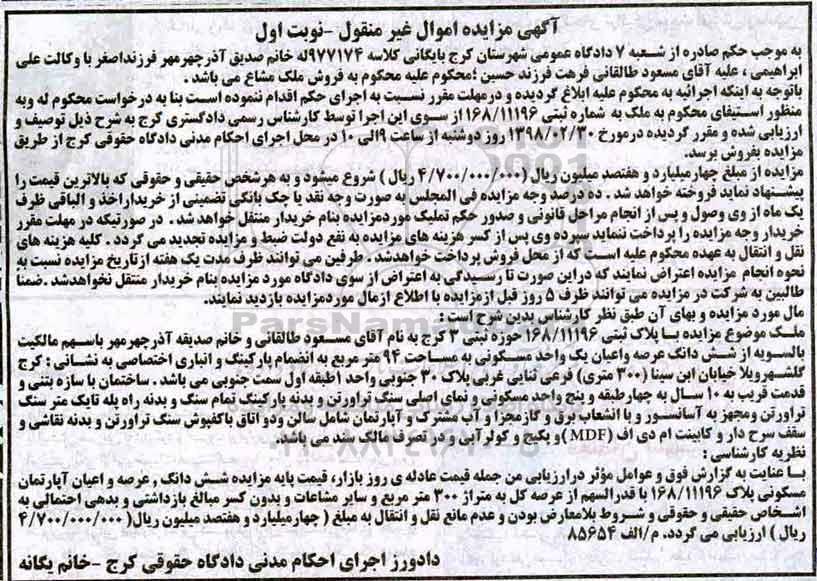 آگهی مزایده اموال غیر منقول -نوبت اول
به موجب حکم صادره از شعبه ۷ دادگاه عمومی شهرستان کرج بایگانی کلاسه ۹۷۷۱۷۴له خانم صدیق آذرچهرمهر فرزنداصغر با وکالت علی
ابراهیمی ، علیه آقای مسعود طالقانی فرهت فرزند حسین ؛محکوم علیه محکوم به فروش ملک مشاع می باشد .
باتوجه به اینکه اجرائیه به محکوم علیه ابلاغ گردیده و درمهلت مقرر نسبت به اجرای حکم اقدام ننموده است بنا به درخواست محکوم له وبه
منظور استیفای محکوم به ملک به شماره ثبتی ۱۶۸/۱۱۱۹۶ از سوی این اجرا توسط کارشناس رسمی دادگستری کرج به شرح ذیل توصیف و
ارزیابی شده و مقرر گردیده درمورخ ۱۳۹۸/۰۲/۳۰ روز دوشنبه از ساعت ۹الی ۱۰ در محل اجرای احکام مدنی دادگاه حقوقی کرج از طریق
مزایده بفروش برسد.
مزایده از مبلغ چهارمیلیارد و هفتصد میلیون ریال (۴/۷۰۰/۰۰۰/۰۰۰ ریال ) شروع میشود و به هرشخص حقیقی و حقوقی که بالاترین قیمت را
پیشنهاد نماید فروخته خواهد شد . ده درصد وجه مزایده فی المجلس به صورت وجه نقد یا چک بانکی تضمینی از خریداراخذ و الباقی ظرف
یک ماه از وی وصول و پس از انجام مراحل قانونی و صدور حکم تملیک موردمزایده بنام خریدار منتقل خواهد شد . در صورتیکه در مهلت مقرر
خریدار وجه مزایده را پرداخت ننماید سپرده وی پس از کسر هزینه های مزایده به نفع دولت ضبط و مزایده تجدید می گردد . کلیه هزینه های
نقل و انتقال به عهده محکوم علیه است که از محل فروش پرداخت خواهدشد . طرفین می توانند ظرف مدت یک هفته ازتاریخ مزایده نسبت به
نحوه انجام مزایده اعتراض نمایند که دراین صورت تا رسیدگی به اعتراض از سوی دادگاه مورد مزایده بنام خریدار منتقل نخواهدشد .ضمنا
طالبین به شرکت در مزایده می توانند ظرف ۵ روز قبل ازمزایده با اطلاع ازمال موردمزایده بازدید نمایند.
مال مورد مزایده و بهای آن طبق نظر کارشناس بدین شرح است :
ملک موضوع مزایده با پلاک ثبتی ۱۶۸/۱۱۱۹۶ حوزه ثبتی ۳ کرج به نام آقای مسعود طالقانی و خانم صدیقه آذرچهرمهر باسهم مالکیت
بالسویه از شش دانگ عرصه واعیان یک واحد مسکونی به مساحت ۹۴ متر مربع به انضمام پارکینگ و انباری اختصاصی به نشانی : کرج
گلشهرویلا خیابان ابن سینا (۳۰۰ متری) فرعی ثنایی غربی پلاک ۳۰ جنوبی واحد ۱طبقه اول سمت جنوبی می باشد . ساختمان با سازه بتنی و
قدمت قریب به ۱۰ سال به چهارطبقه و پنج واحد مسکونی و نمای اصلی سنگ تراورتن و بدنه پارکینگ تمام سنگ و بدنه راه پله تایک متر سنگ
تراورتن ومجهز به آسانسور و با انشعاب برق و گازمجزا و آب مشترک و آپارتمان شامل سالن ودو اتاق باکفپوش سنگ تراورتن و بدنه نقاشی و
سقف سرح دار و کابینت ام دی اف (MDF )و پکیج و کولرآبی و در تصرف مالک سند می باشد.
نظریه کارشناسی :
با عنایت به گزارش فوق و عوامل مؤثر درارزیابی من جمله قیمت عادله ی روز بازار، قیمت پایه مزایده شش دانگ , عرصه و اعیان آپارتمان
مسکونی پلاک ۱۶۸/۱۱۱۹۶ با قدرالسهم از عرصه کل به متراژ ۳۰۰ متر مربع و سایر مشاعات و بدون کسر مبالغ بازداشتی و بدهی احتمالی به
اشخاص حقیقی و حقوقی و شروط بلامعارض بودن و عدم مانع نقل و انتقال به مبلغ ( چهارمیلیارد و هفتصد میلیون ریال( ۴/۷۰۰/۰۰۰/۰۰۰
ریال ) ارزیابی می گردد. م/الف ۸۵۶۵۴
دادورز اجرای احکام مدنی دادگاه حقوقی کرج -خانم یگانه